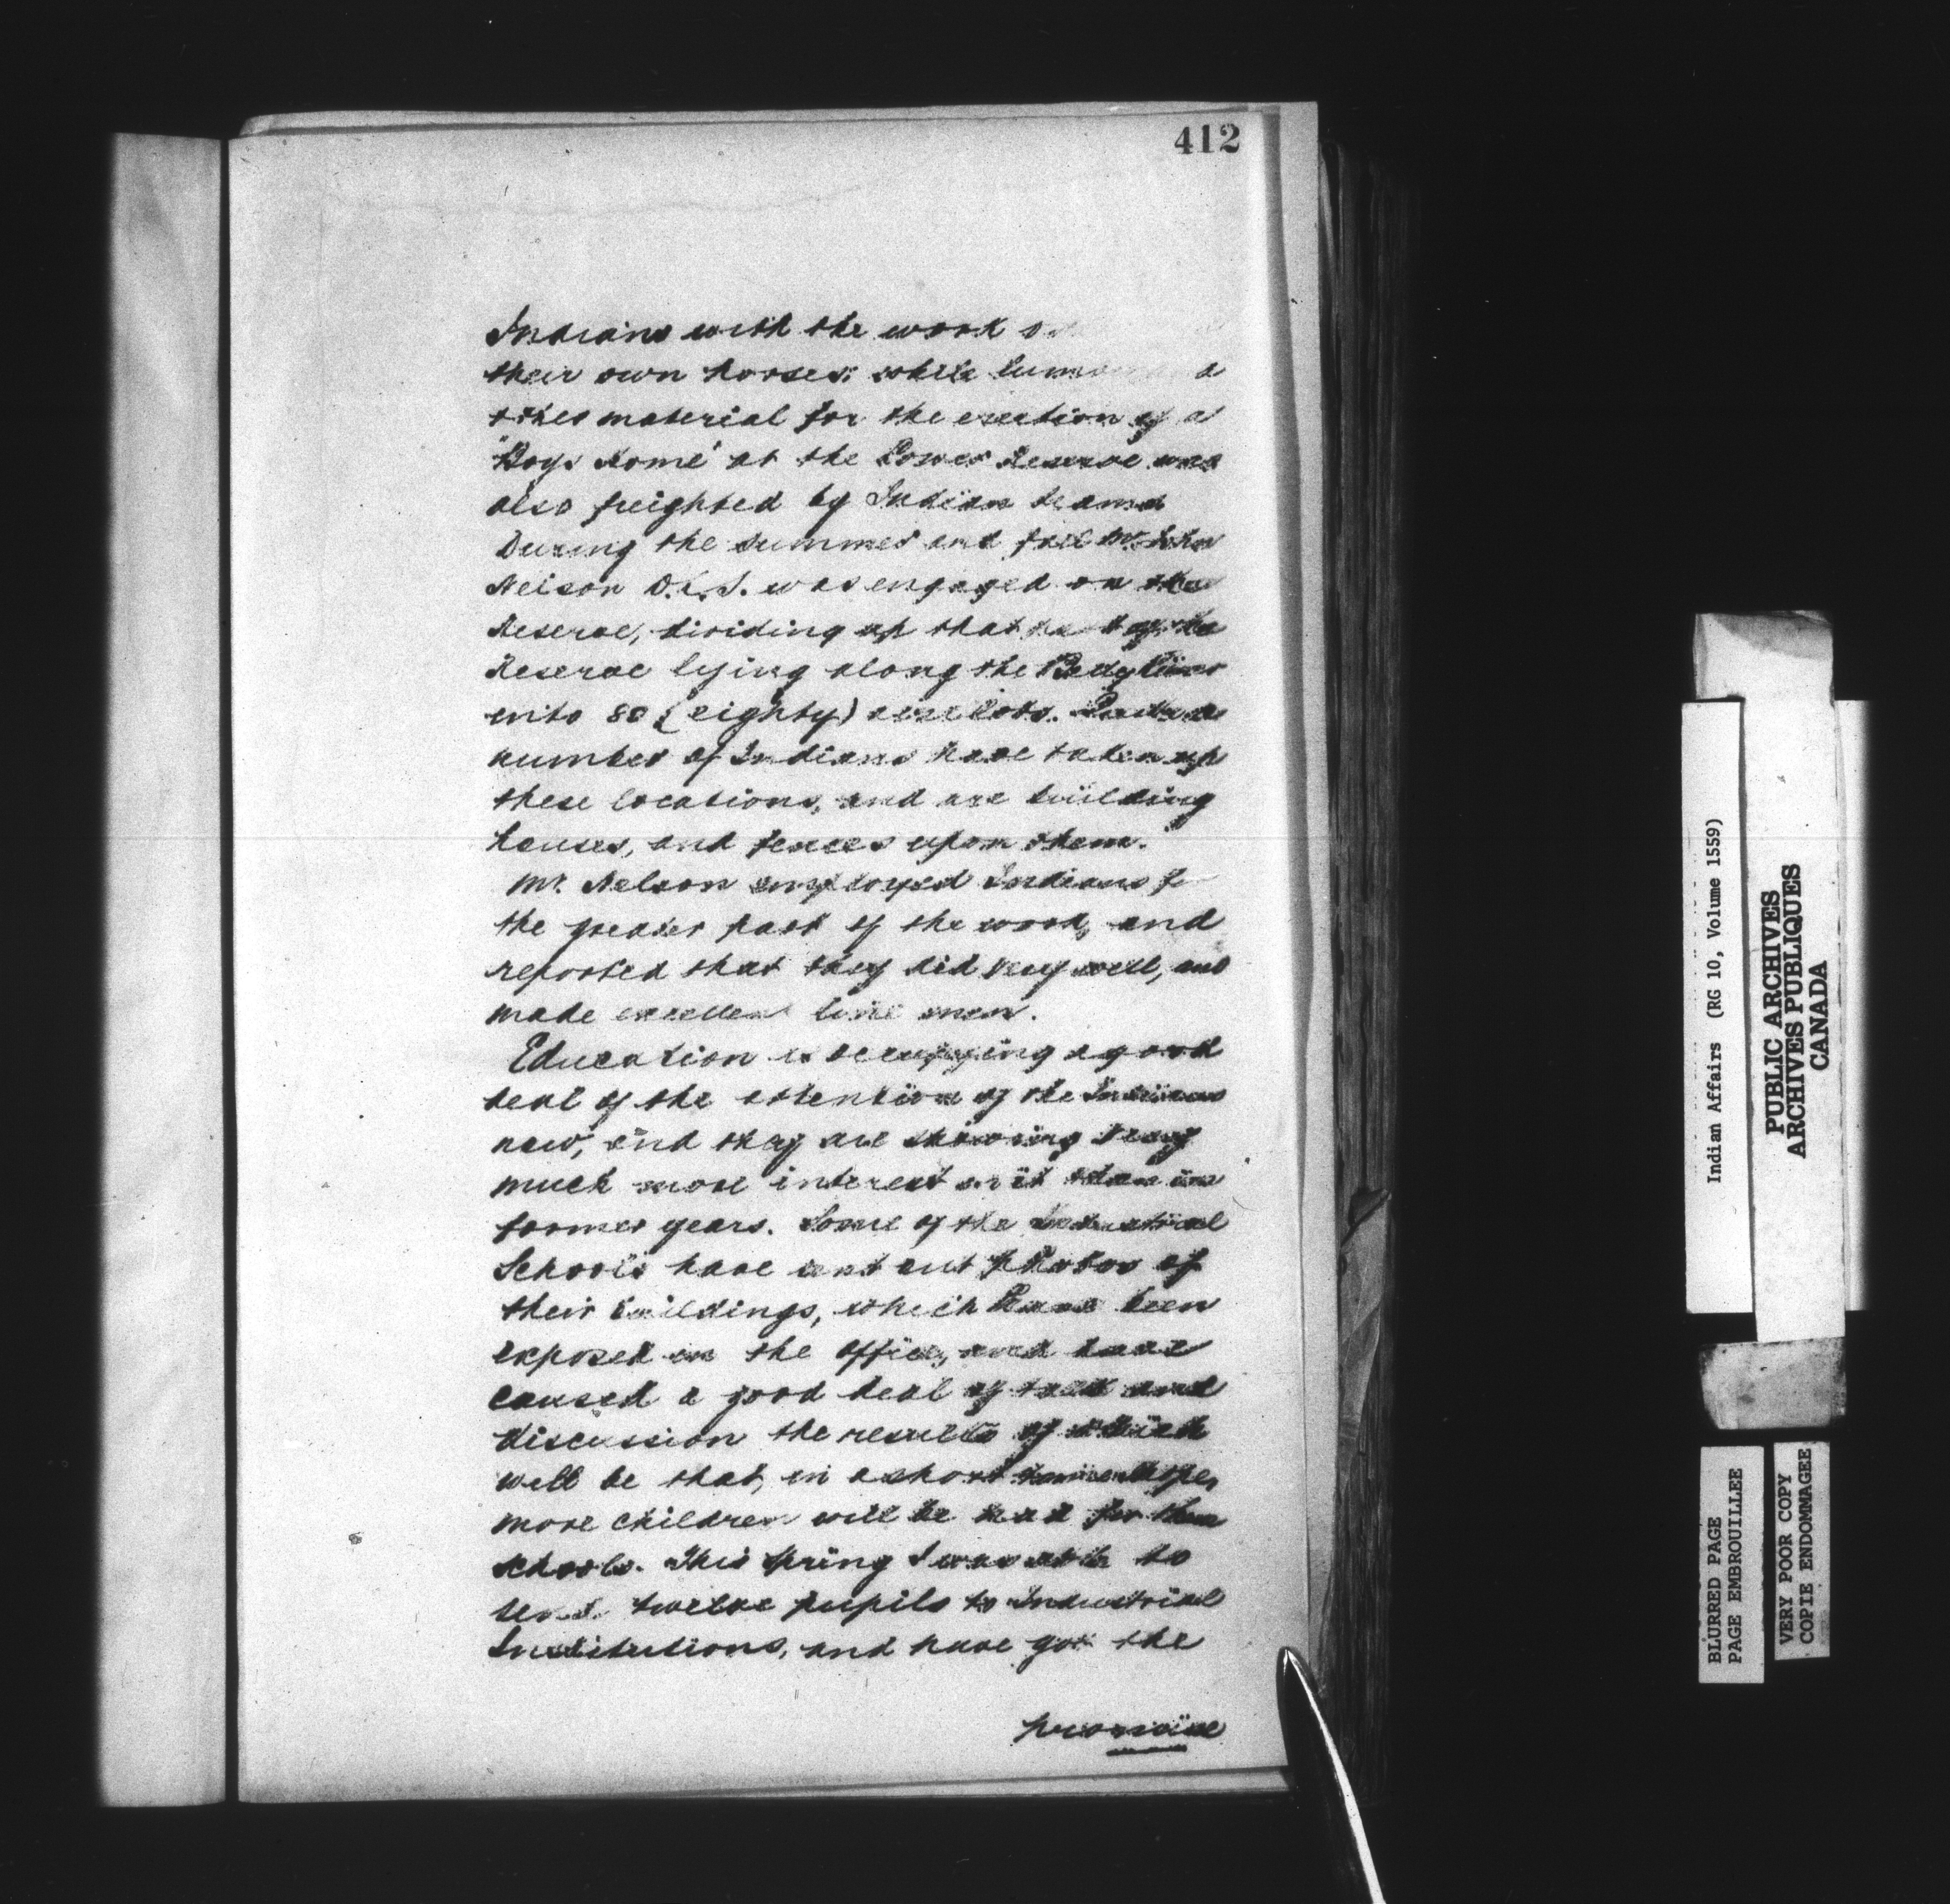 412
Indians with the work
their own horses: while
other material for the erection of a
"Boys Home" at the Lower Reserve was
also freighted by Indian teams
During the summer and fall Mr. John
Nelson D.L.S. was engaged on the
Reserve, dividing up that part of the
Reserve lying along the Belly River
into 80 (eighty) acre lots. Quite a
number of Indians have taken up
these locations, and are building
houses, and fences upon them.
Mr. Nelson employed Indians for
the greater part of the work, and
reported that they did very well, and
made excellent line men.
Education is occupying a good
deal of the attention of the Indians
now, and they are showing very
much more interest in it than in
former years. Some of the Industrial
Schools have sent out Photos of
their buildings, which have been
exposed in the office, and have
caused a good deal of talk and
discussion the results of which
will be that, in a short time
more children will be had for these
schools. This Spring I was able to
send twelve pupils to Industrial
Institutions, and have got the
promise
Indian Affairs (RG 10, Volume 1559)
PUBLIC ARCHIVES
ARCHIVES PUBLIQUES
CANADA
BLURRED PAGE
PAGE EMBROUILLEE
VERY POOR COPY
COPIE ENDOMMAGEE